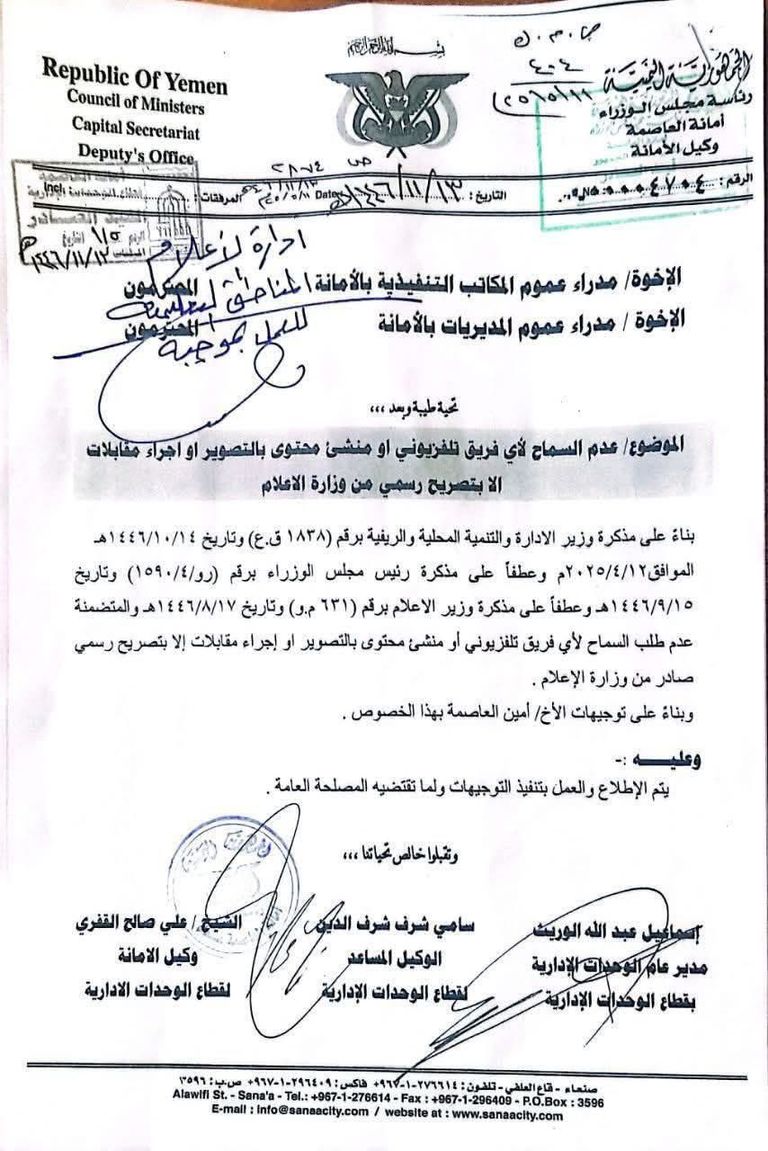 بسم الله الرحمن الرحيم
Republic Of Yemen
Council of Ministers
Capital Secretariat
Deputy's Office
الجمهورية اليمنية
رئاسة مجلس الوزراء
أمانة العاصمة
وكيل الأمانة
٤٠٤
الرقم: ٤٧٠٤
التاريخ: ١٤٤٦/١١/١٣
Date
المرفقات:
Incl
١٤٤٦/١١/١٣
الإخوة/ مدراء عموم المكاتب التنفيذية بالأمانة المحترمون
الإخوة / مدراء عموم المديريات بالأمانة المحترمون
ادارة الاعلام
المناطق التعليمية
للعمل بموجبه
تحية طيبة وبعد ,,,
الموضوع/ عدم السماح لأي فريق تلفزيوني او منشئ محتوى بالتصوير او اجراء مقابلات
الا بتصريح رسمي من وزارة الاعلام
بناءً على مذكرة وزير الادارة والتنمية المحلية والريفية برقم (١٨٣٨ ق.ع) وتاريخ ١٤٤٦/١٠/١٤هـ
الموافق٢٠٢٥/٤/١٢م وعطفاً على مذكرة رئيس مجلس الوزراء برقم (رو/١٥٩٠/٤) وتاريخ
١٤٤٦/٩/١٥هـ وعطفاً على مذكرة وزير الاعلام برقم (٦٣١ م.و) وتاريخ ١٤٤٦/٨/١٧هـ والمتضمنة
عدم طلب السماح لأي فريق تلفزيوني أو منشئ محتوى بالتصوير او إجراء مقابلات إلا بتصريح رسمي
صادر من وزارة الإعلام .
وبناءً على توجيهات الأخ/ أمين العاصمة بهذا الخصوص .
وعليــــه :-
يتم الإطلاع والعمل بتنفيذ التوجيهات ولما تقتضيه المصلحة العامة .
وتقبلوا خالص تحياتنا ,,,
إسماعيل عبد الله الوريث
مدير عام الوحدات الإدارية
بقطاع الوحدات الإدارية
سامي شرف شرف الدين
الوكيل المساعد
لقطاع الوحدات الإدارية
الشيخ / علي صالح القفري
وكيل الامانة
لقطاع الوحدات الادارية
صنعاء - قاع العلفي - تلفون: ٢٧٦٦١٤-١-٩٦٧+ فاكس: ٢٩٦٤٠٩-١-٩٦٧+ ص.ب: ٣٥٩٦
Alawifi St. - Sana'a - Tel.: +967-1-276614 - Fax : +967-1-296409 - P.O.Box : 3596
E-mail : info@sanaacity.com / website at : www.sanaacity.com